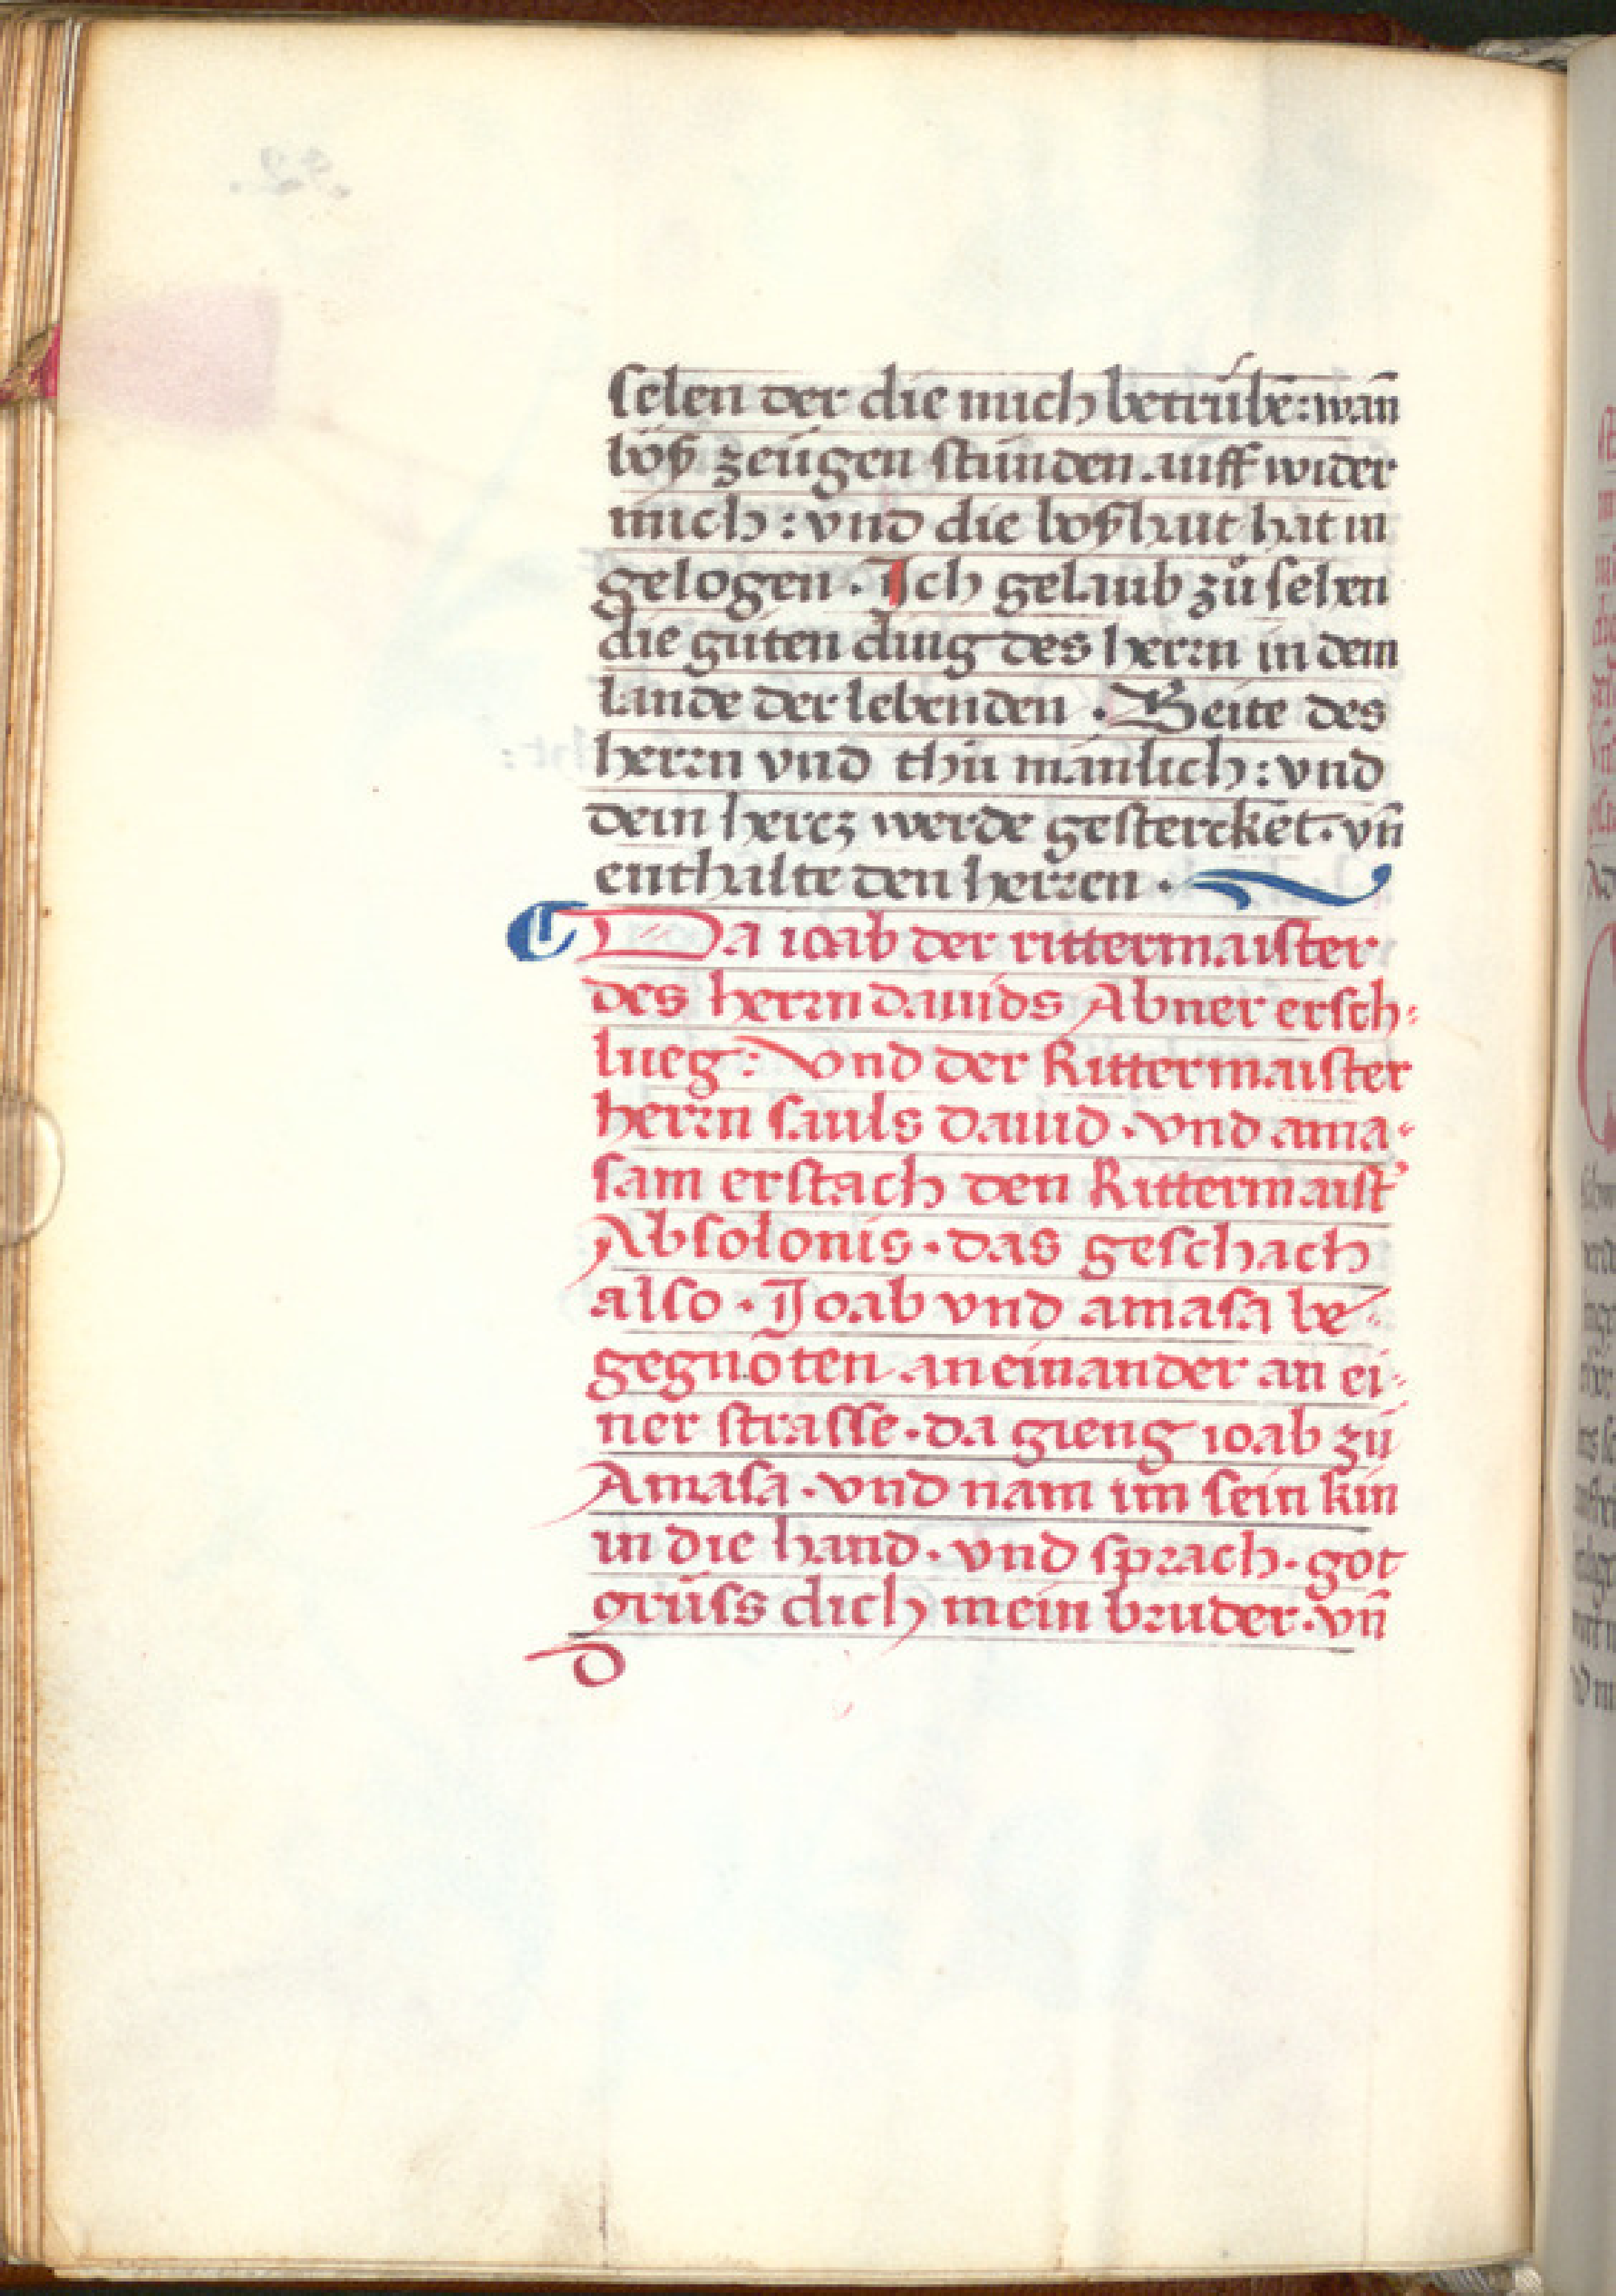 selen der die mich betrübē: wan̄
böß zeügen stünden auff wider
mich: vnd die boßhait hat in
gelogen. Ich gelaub zů sehen
die güten ding des herrn in dem
lande der lebenden. Beite des
herrn vnd thü mänlich: vnd
dein hercz werde gestercket. vn̄
enthalte den herren.
Da ioab der rittermaister
des herrn dauids Abner ersch-
lueg: Vnd der Rittermaister
herrn sauls dauid. vnd ama-
sam erstach den Rittermaist̉
Absolonis. das geschach
also. Joab vnd amasa be-
gegnoten an einander an ei-
ner strasse. da gieng ioab zü
Amasa. vnd nam im sein kin
in die hand. vnd sprach. got
grüss dich mein bruder. vn̄